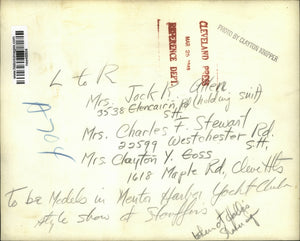 PHOTO BY CLAYTON KNIPPER
CLEVELAND PRESS
MAR 25 1948
REFERENCE DEPT.
L to R
Mrs. Jack P.
(holding suit)
2538 Rd
S.H.
Mrs. Charles F. Stewart
22599 Westchester Rd.
S.H.
Mrs. Clayton Y. Goss
1618 Maple Rd, Cleve Hts
To be Models in Mentor Harbor Yacht Club
style show at Stouffers